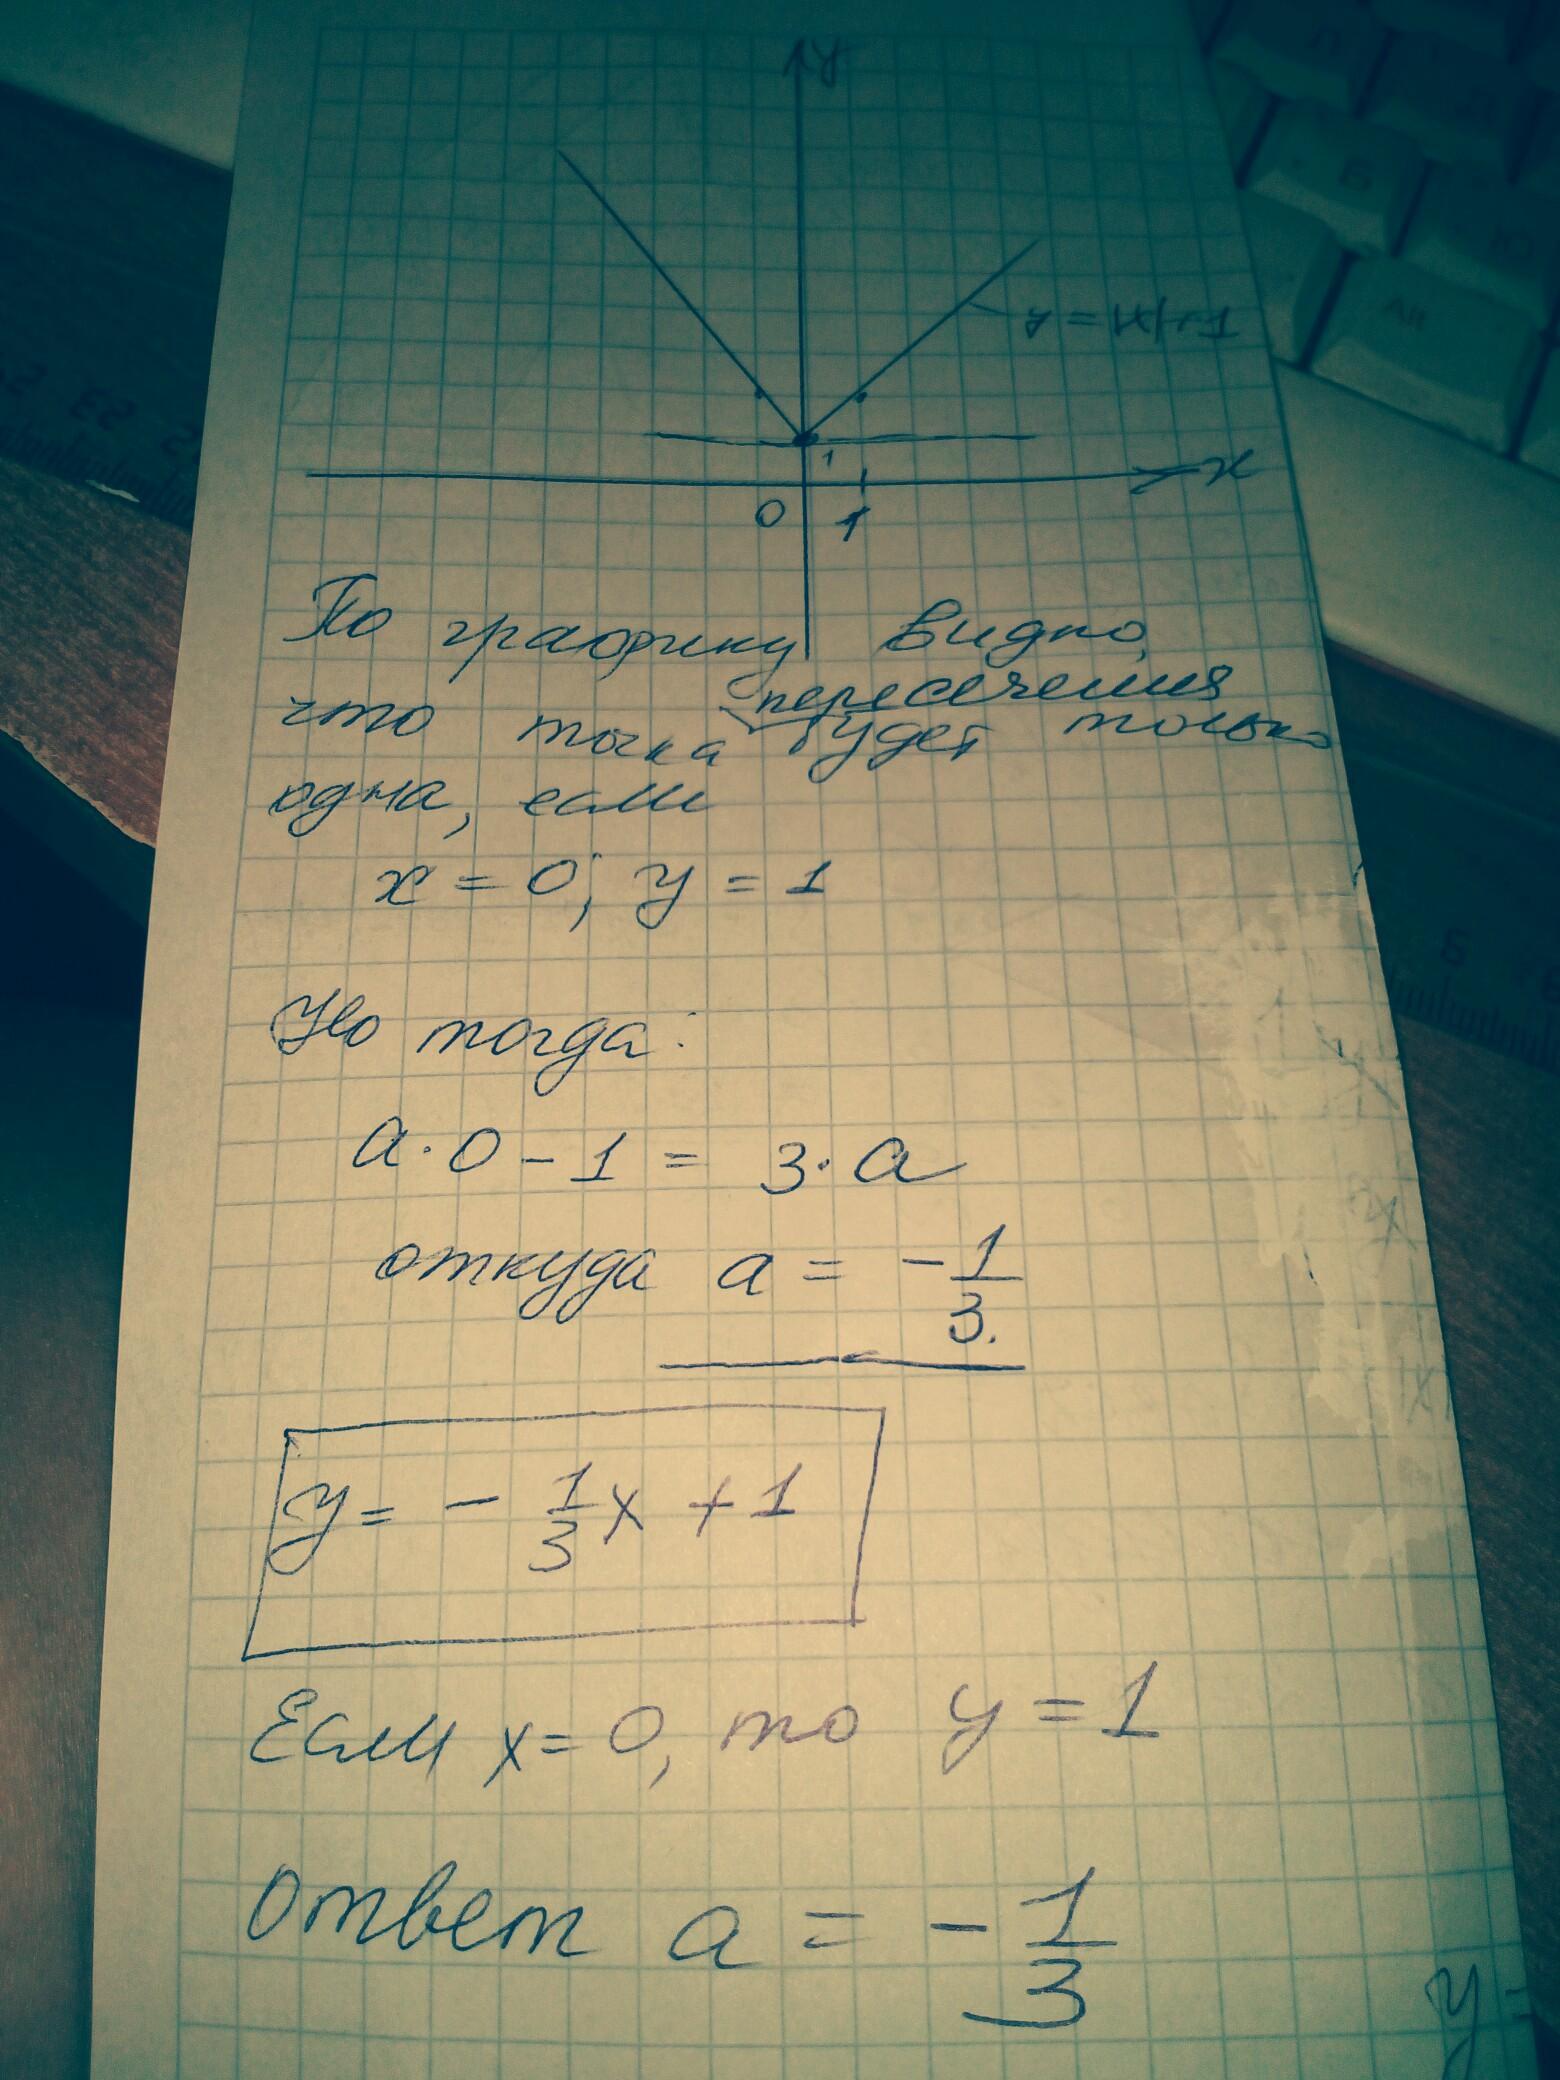 y
y = |x|+1
1
x
0 1
По графику видно,
что точка пересечения будет только
одна, если
x = 0; y = 1
Но тогда:
a·0 - 1 = 3·a
откуда a = - 1/3.
y = - 1/3 x + 1
Если x = 0, то y = 1
Ответ a = - 1/3
y =